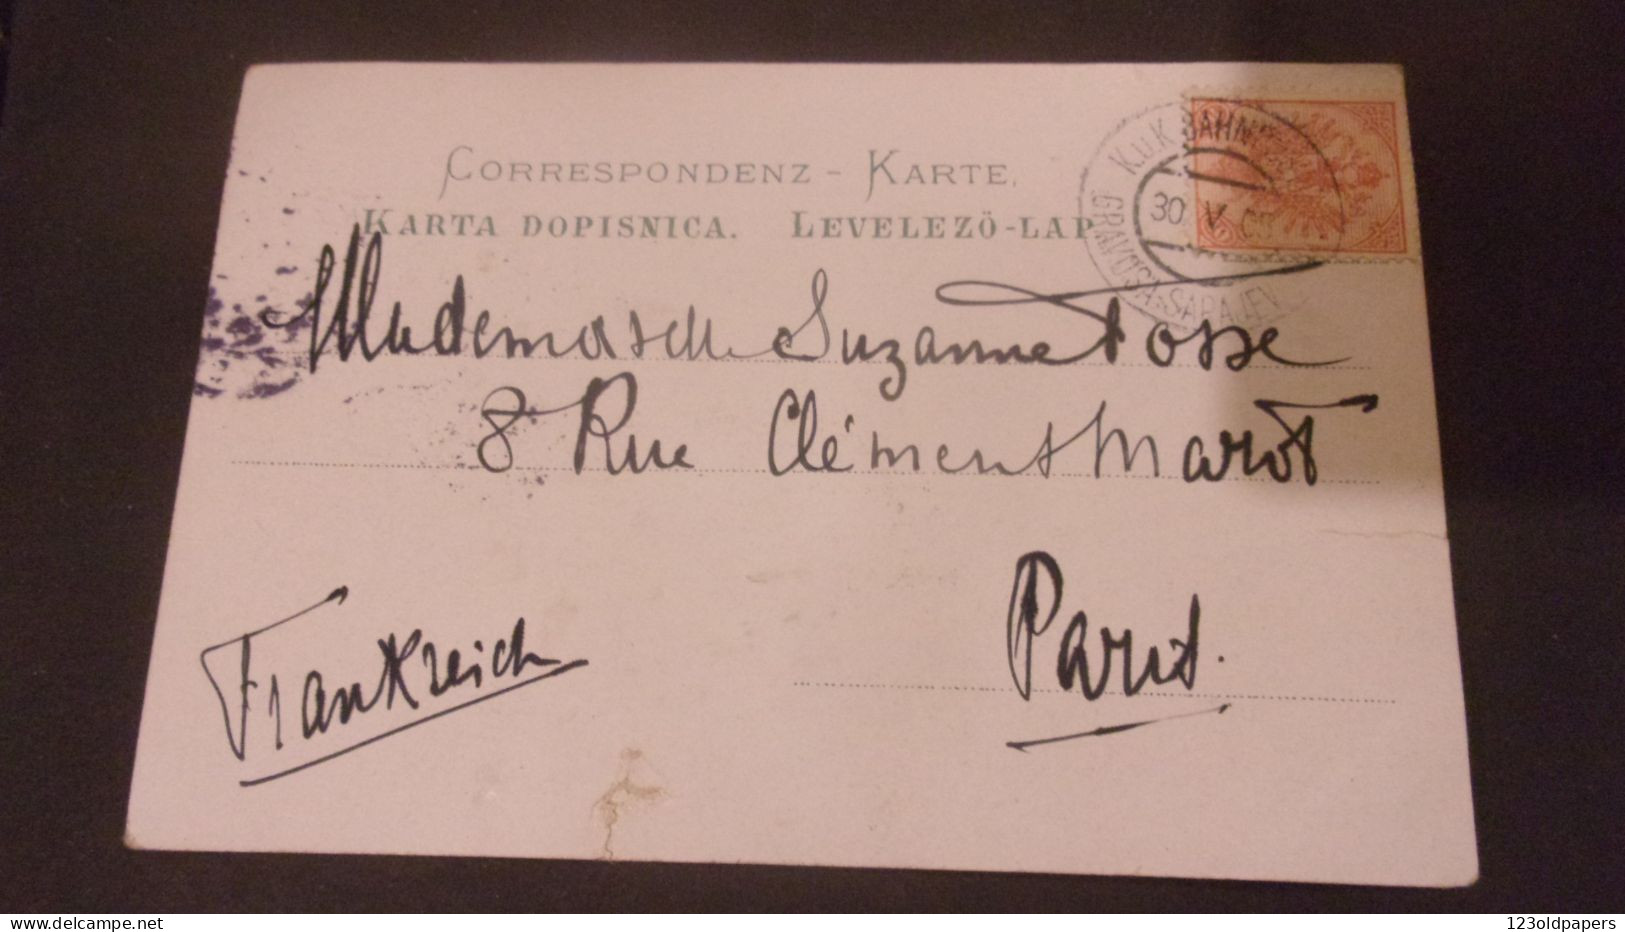 CORRESPONDENZ - KARTE.
KARTA DOPISNICA. LEVELEZÖ-LAP
K.u.K. BAHN
30 V
GRAVOSA-SARAJEV
Mademoiselle Suzanne Fosse
8 Rue Clément Marot
Paris.
Frankreich
123oldpapers